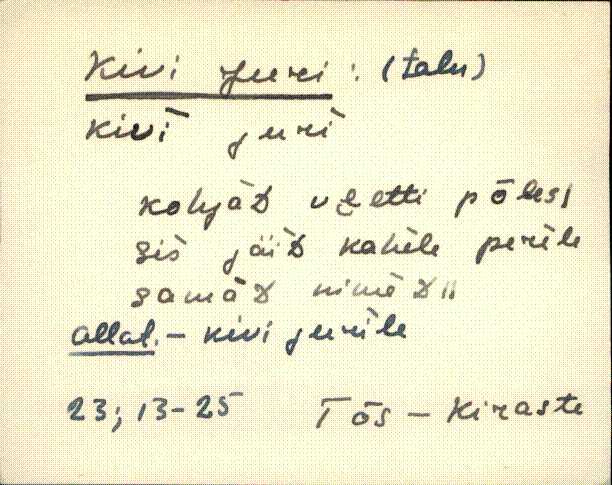 Kivi Juri : (talu)
kivì jurì
kohjàD vẹetti pōlesi
sìs jäiD kahèle perèle
samàD nimèD ||
allat. – kivi jurile
23; 13-25 Tõs – Kiraste